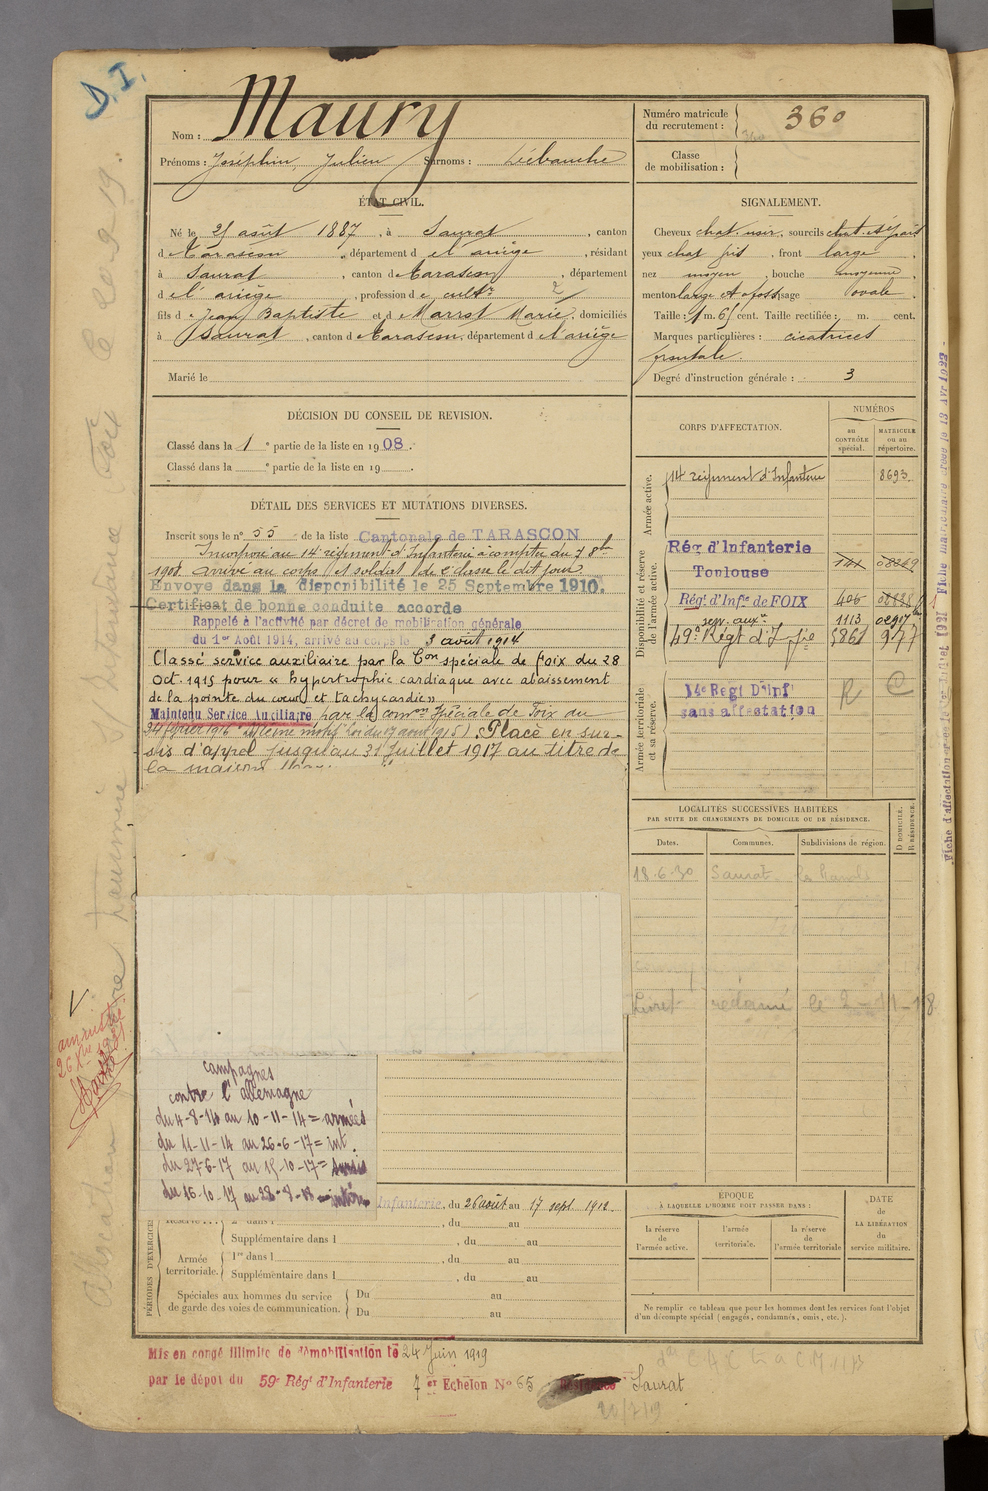 D.I.
Nom : Maury
Prénoms : Joséphin, Julien Surnoms : Débauche
Numéro matricule du recrutement : 360
Classe de mobilisation :
ÉTAT CIVIL.
Né le 25 août 1887, à Saurat, canton
de Tarascon, département de l'ariège, résidant
à Saurat, canton de Tarascon, département
de l'ariège, profession de cultr
fils de Jean Baptiste et de Marrot Marie, domiciliés
à Saurat, canton de Tarascon, département de l'ariège
Marié le
SIGNALEMENT.
Cheveux sourcils
yeux front large
nez moyen, bouche moyenne,
menton large visage ovale.
Taille : 1 m. 65 cent. Taille rectifiée : m. cent.
Marques particulières : cicatrices
frontale.
Degré d'instruction générale : 3
DÉCISION DU CONSEIL DE REVISION.
Classé dans la 1e partie de la liste en 1908.
Classé dans la e partie de la liste en 19 .
DÉTAIL DES SERVICES ET MUTATIONS DIVERSES.
Inscrit sous le n° 55 de la liste Cantonale de TARASCON
Incorporé au 14e régiment d'Infanterie à compter du 7 8bre
1908. arrivé au corps et soldat de 2e classe le dit jour.
Envoyé dans la disponibilité le 25 Septembre 1910.
Certificat de bonne conduite accordé
Rappelé à l'activité par décret de mobilisation générale
du 1er Août 1914, arrivé au corps le 3 août 1914
Classé service auxiliaire par la Con spéciale de Foix du 28
Oct. 1915 pour « hypertrophie cardiaque avec abaissement
de la pointe du cœur et tachycardie »
Maintenu Service Auxiliaire par la comon spéciale de Foix du
février 1916 Même motif loi du 17 août 1915) Placé en sur-
sis d'appel jusqu'au 31 Juillet 1917 au titre de
la maison
CORPS D'AFFECTATION.
NUMÉROS
au CONTRÔLE spécial.
MATRICULE ou au répertoire.
Armée active.
14 régiment d'Infanterie 8693
Disponibilité et réserve de l'armée active.
Rég d'Infanterie
Toulouse 141
Régt. d'Infie de FOIX 406
serv. auxre 1113 02917
49e Régt d'Infie 5861 977
Armée territoriale et sa réserve.
14e Regt D'Inf
sans affectation R C
LOCALITÉS SUCCESSIVES HABITÉES
PAR SUITE DE CHANGEMENTS DE DOMICILE OU DE RÉSIDENCE.
Dates. Communes. Subdivisions de région. D DOMICILE. R RÉSIDENCE.
18.6.30 Saurat
Livret réclamé le
campagnes
contre l'allemagne
du 4-8-14 au 10-11-14 = armées
du 11-11-14 au 26-6-17 = int.
du 27-6-17 au 15-10-17 = sursis
du 16-10-17 au 28-8-18 = intér
PÉRIODES D'EXERCICES
Infanterie, du 26 août au 17 sept 1912.
Réserve 2e dans l , du au
Supplémentaire dans l , du au
Armée territoriale.
1re dans l , du au
Supplémentaire dans l , du au
Spéciales aux hommes du service de garde des voies de communication.
Du au
Du au
EPOQUE
À LAQUELLE L'HOMME DOIT PASSER DANS :
la réserve de l'armée active.
l'armée territoriale.
la réserve de l'armée territoriale
DATE de LA LIBÉRATION du service militaire.
Ne remplir ce tableau que pour les hommes dont les services font l'objet
d'un décompte spécial (engagés, condamnés, omis, etc.).
Mis en congé illimité de démobilisation le 24 Juin 1919
par le dépôt du 59e Régt d'Infanterie 7er Echelon No 65 Saurat